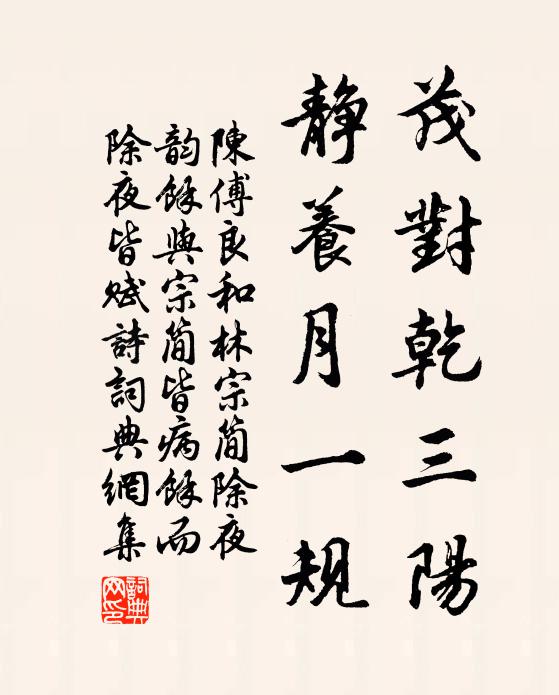 茂對乾三陽
靜養月一規
陳傅良和林宗簡除夜
韵餘與宗簡皆病餘而
除夜皆賦詩詞典網集
詞典網印